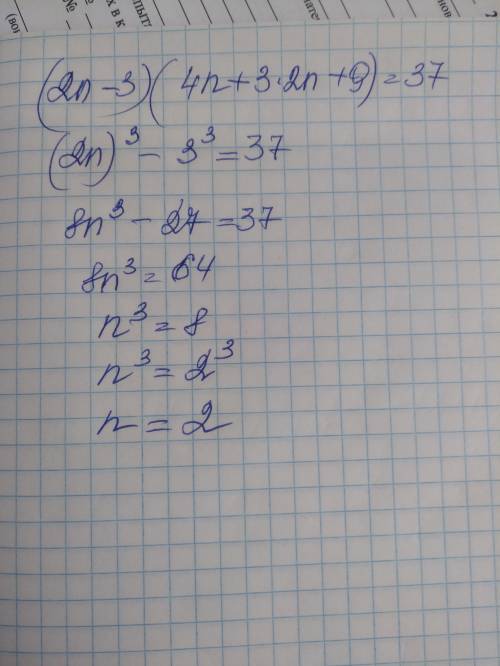 (2n-3)(4n+3·2n+9)=37
(2n)³-3³=37
8n³-27=37
8n³=64
n³=8
n³=2³
n=2